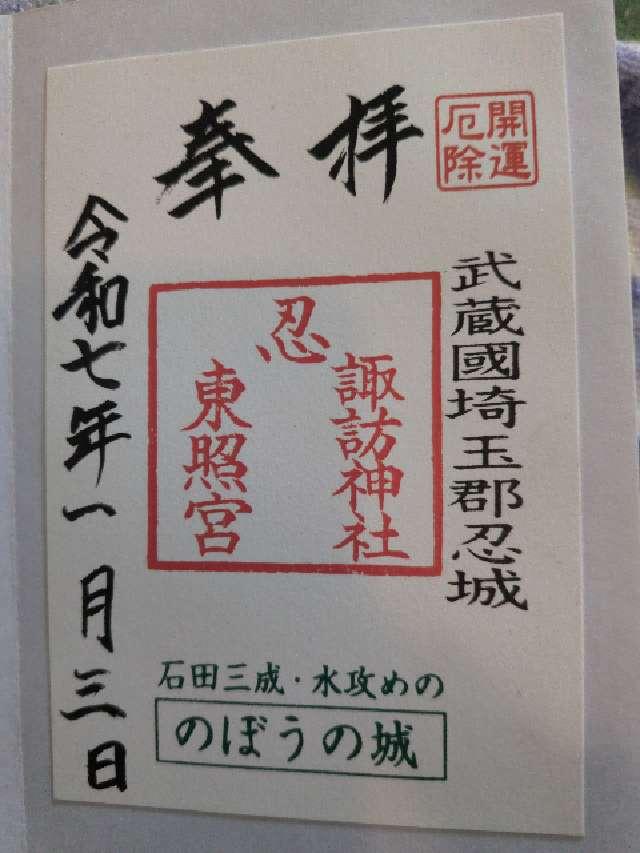 開運
厄除
奉拝
武蔵國埼玉郡忍城
忍
諏訪神社
東照宮
令和七年一月三日
石田三成・水攻めの
のぼうの城